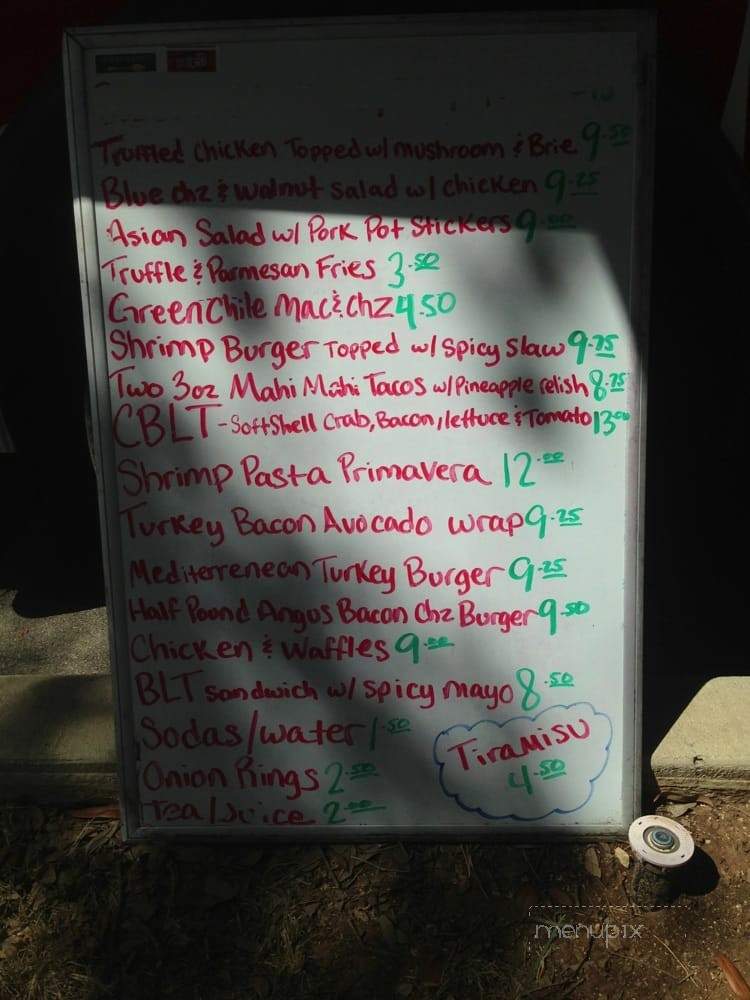 Truffled Chicken Topped w/ mushroom & Brie 9.50
Blue chz & walnut salad w/ chicken 9.25
Asian Salad w/ Pork Pot Stickers 9.00
Truffle & Parmesan Fries 3.50
Green Chile Mac & chz 4.50
Shrimp Burger Topped w/ spicy slaw 9.75
Two 3oz Mahi Mahi Tacos w/ Pineapple relish 8.75
CBLT - SoftShell Crab, Bacon, lettuce & Tomato 13.00
Shrimp Pasta Primavera 12.00
Turkey Bacon Avocado wrap 9.25
Mediterrenean Turkey Burger 9.25
Half Pound Angus Bacon Chz Burger 9.50
Chicken & Waffles 9.00
BLT sandwich w/ spicy mayo 8.50
Sodas/water 1.50
Onion Rings 2.50
Tea/Juice 2.00
Tiramisu
4.50
menupix